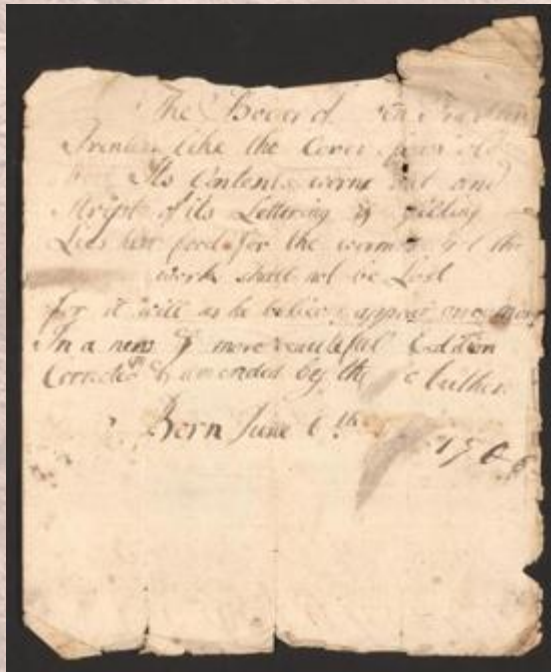 The Body of
Printer like the Cover of an old
Its Contents worn out and
Stript of its Lettering & gilding
Lies here food for the worms yet the
work shall not be Lost
for it will as he believes appear once more
In a new & more beautiful Edition
Corrected & amended by the Author
Born June 6th